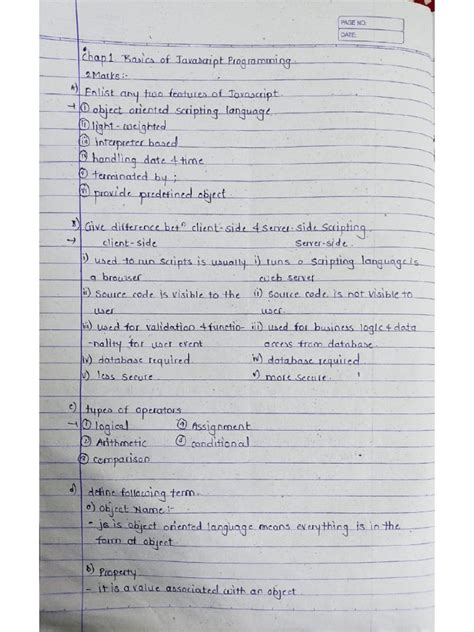 PAGE NO:
DATE:
Chap 1 Basics of Javascript Programming.
2 Marks:-
a) Enlist any two features of Javascript.
→ ① object oriented scripting language
ⓘⓘ light-weighted
ⓘⓘⓘ interpreter based
ⓘⓥ handling date & time
ⓥ terminated by ;
ⓥⓘ provide predefined object.
B) Give difference betn client-side & server-side scripting.
→ client-side server-side.
i) used to run scripts is usually i) runs a scripting language is
a browser web server
ii) Source code is visible to the ii) source code is not visible to
user user.
iii) used for validation & functio- iii) used for business logic & data
nality for user event access from database.
iv) database required. iv) database required.
v) less secure. v) more secure.
c) types of operators
→ ① logical ④ Assignment
② Arithmetic ⑤ conditional
③ comparison
d) define following term.
a) object Name:-
- js is object oriented language means everything is in the
form of object
b) Property
- it is a value associated with an object.